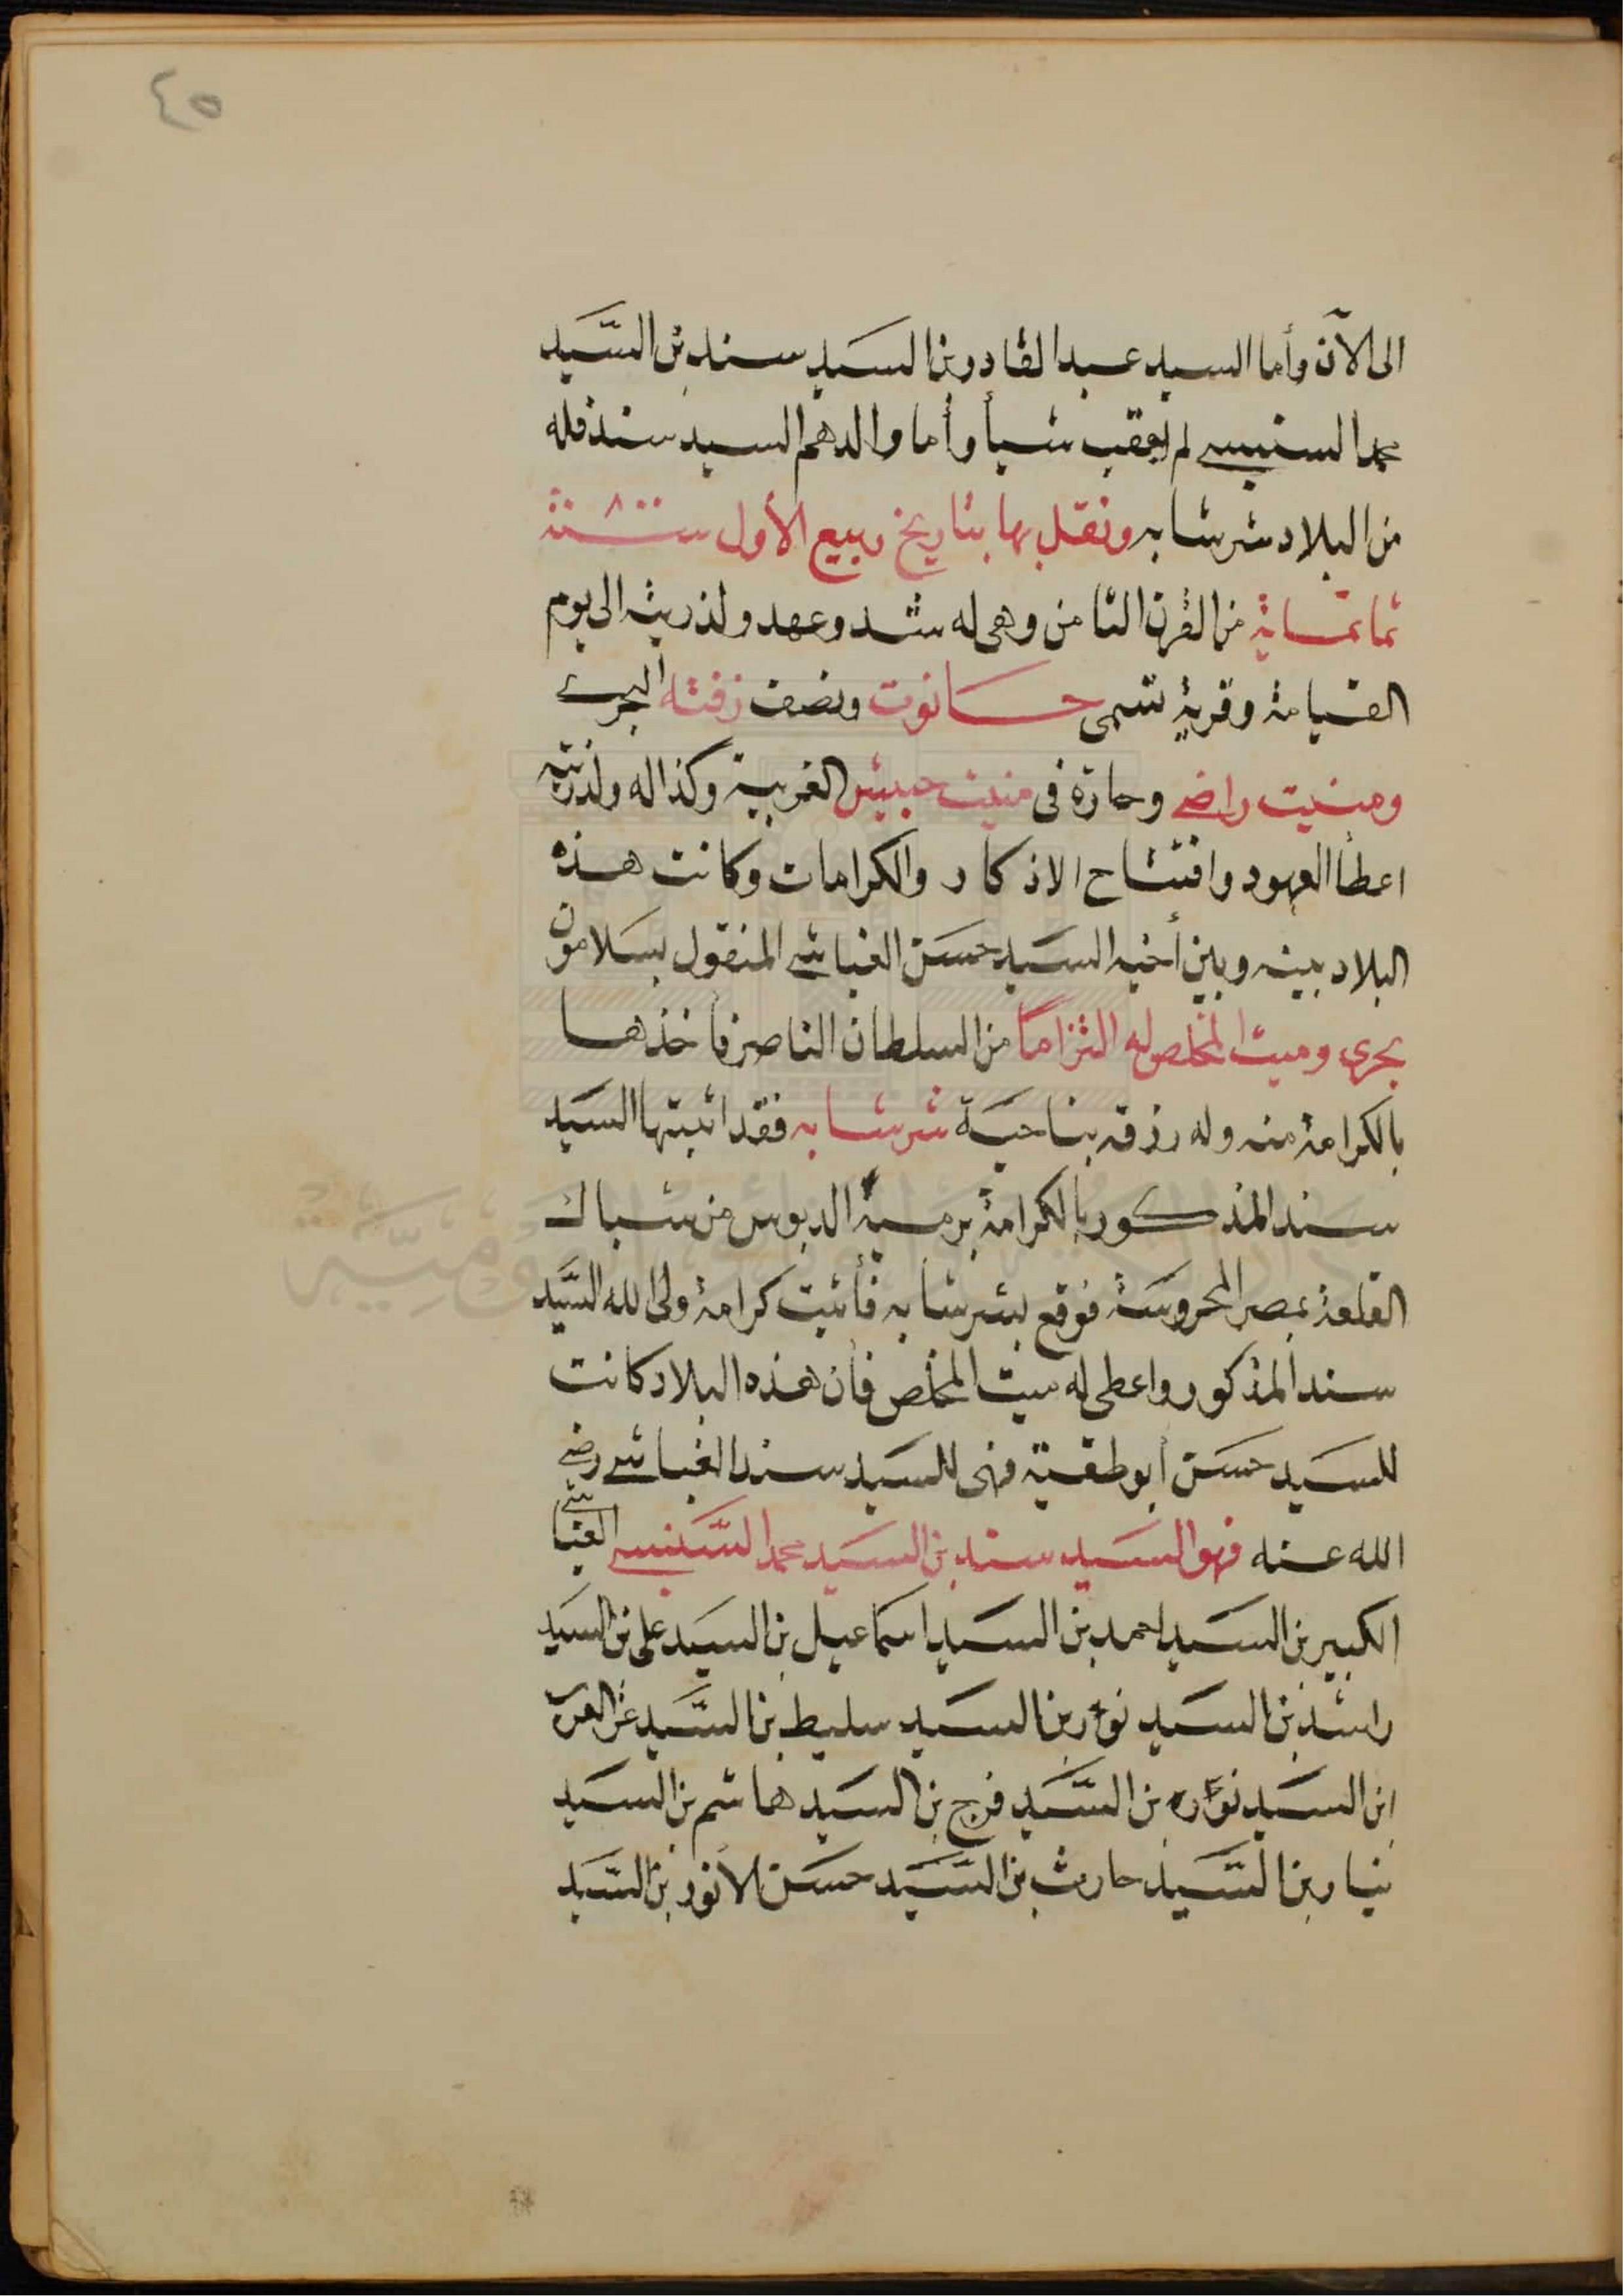 ٤٥
الى الآن وأما السيد عبد القادر بن السيد سند بن السيد
محمد السنبسى لم يعقب شيأ وأما والدهم السيد سند فله
من البلاد شرشابه ونقل بها بتاريخ ربيع الأول سنة ٨٠٠
ثمانمائة من القرن الثامن وهى له شد وعهد ولذريته الى يوم
القيامة وقرية تسمى حانوت ونصف زفته البحرى
ومنيت راضى وحارة فى منيت حبيش الغربية وكذا له ولذريته
اعطا العهود وافتتاح الاذكار والكرامات وكانت هذه
البلاد بينه وبين أخيه السيد حسن الغباشى المنقول بسلامون
بحرى وميت المخلص له التزاما من السلطان الناصر فأخذها
بالكرامة منه وله رزقه بناحية شرشابه فقد اثبتها السيد
سند المذكور بالكرامة برمية الدبوس من شباك
القلعة بمصر المحروسة فوقع بشرشابه فأثبت كرامة ولى الله السيد
سند المذكور واعطى له ميت المخلص فأن هذه البلاد كانت
للسيد حسن ابوطقية فهى للسيد سند الغباشى رضى
الله عنه فهو السيد سند بن السيد محمد السنبسى الغباشى
الكبير بن السيد احمد بن السيد اسماعيل بن السيد على بن السيد
راشد بن السيد نوار بن السيد سليط بن السيد عز العرب
ابن السيد نواره بن السيد فرج بن السيد هاشم بن السيد
نيار بن السيد حارث بن السيد حسن الانور بن السيد
دار الكتب والوثائق القومية